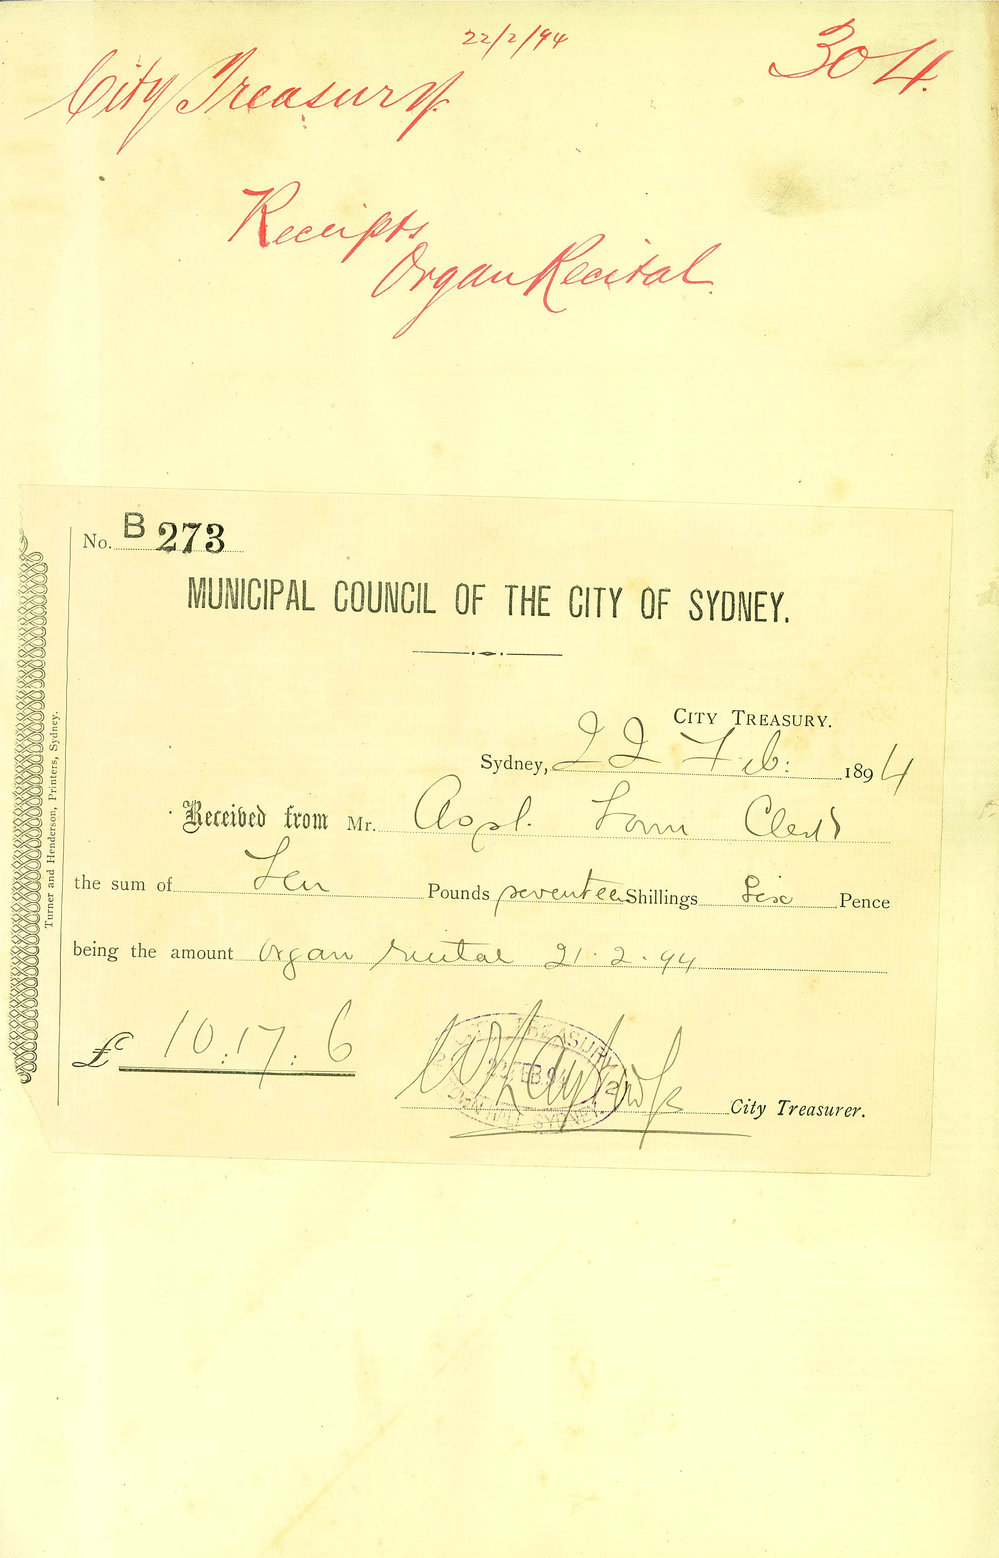 22/2/94
304.
City Treasury.
Receipts
Organ Recital.
No. B 273
MUNICIPAL COUNCIL OF THE CITY OF SYDNEY.
CITY TREASURY.
Sydney, 22 Feb: 1894
Received from Mr. Asst. Town Clerk
the sum of Ten Pounds seventeen Shillings Six Pence
being the amount organ recital 21.2.94
£ 10:17:6
City Treasurer.
CITY TREASURY
22 FEB. 94
TOWN HALL SYDNEY
Turner and Henderson, Printers, Sydney.